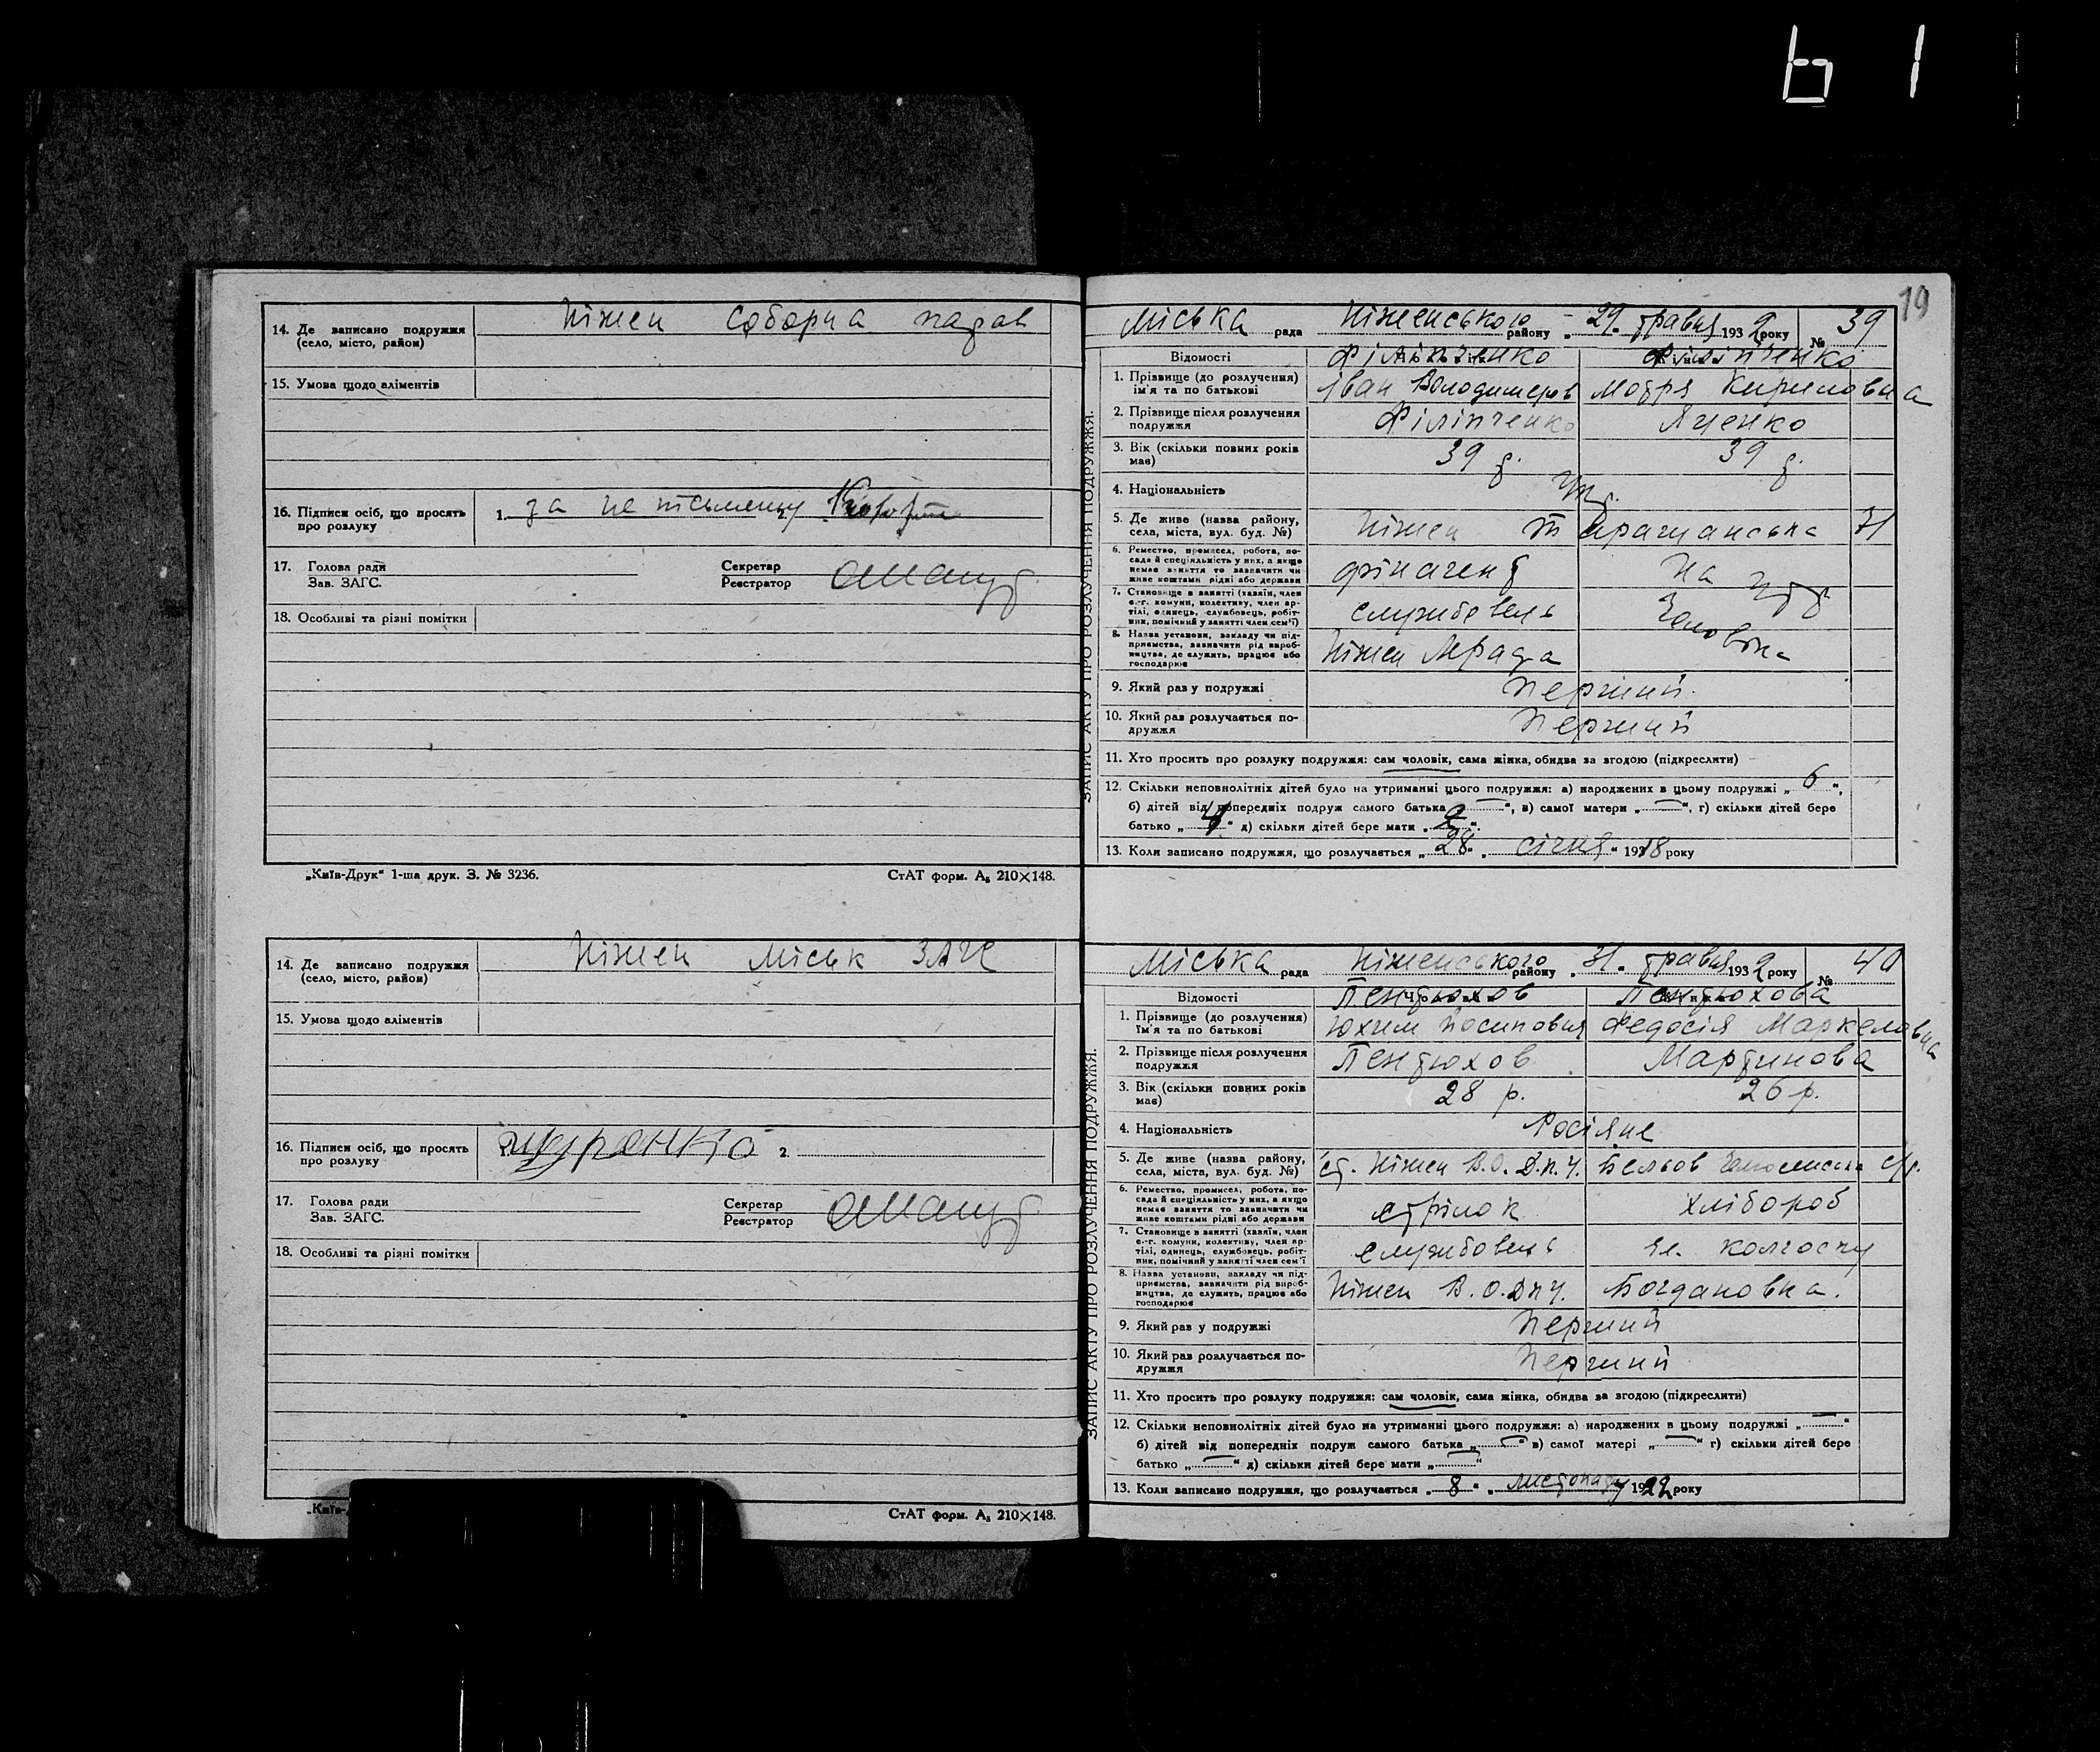 19
14. Де записано подружжя
(село, місто, район)
Ніжен Соборна
15. Умова щодо аліментів
16. Підписи осіб, що просять
про розлуку
1. за не письменну
17. Голова ради
Зав. ЗАГС.
Секретар
Реєстратор
18. Особливі та різні помітки
„Київ-Друк“ 1-ша друк. З. № 3236.
СтАТ форм. А₅ 210×148.
ЗАПИС АКТУ ПРО РОЗЛУЧЕННЯ ПОДРУЖЖЯ.
Міська рада Ніженського району „29“ травня 1932 року № 39
Відомості
Філіпченко Філіпченко
1. Прізвище (до розлучення)
ім'я та по батькові
Іван Володимеров Мотря Кириловна
2. Прізвище після розлучення
подружжя
Філіпченко Яценко
3. Вік (скільки повних років
має)
39 р. 39 р.
4. Національність
Укр.
5. Де живе (назва району,
села, міста, вул. буд. №)
Ніжен Таращанська 71
6. Ремество, промисел, робота, по-
сада й спеціяльність у них, а якщо
немає заняття то зазначити чи
живе коштами рідні або держави
фінагент На утр
7. Становище в занятті (хазяїн, член
с.-г. комуни, колективу, член ар-
тілі, одинець, службовець, робіт-
ник, помічний у занятті член сем'ї)
службовець Чоловіка
8. Назва установи, закладу чи під-
приємства, зазначити рід вироб-
ництва, де служить, працює або
господарює
Ніжен Мрада
9. Який раз у подружжі
Перший
10. Який раз розлучається по-
дружжя
Перший
11. Хто просить про розлуку подружжя: сам чоловік, сама жінка, обидва за згодою (підкреслити)
12. Скільки неповнолітніх дітей було на утриманні цього подружжя: а) народжених в цьому подружжі „6“,
б) дітей від попередніх подруж самого батька „—“, в) самої матери „—“, г) скільки дітей бере
батько „4“ д) скільки дітей бере мати „2“.
13. Коли записано подружжя, що розлучається „28“ „січня“ 1918 року
14. Де записано подружжя
(село, місто, район)
Ніжен Міськ ЗАГС
15. Умова щодо аліментів
16. Підписи осіб, що просять
про розлуку
2.
17. Голова ради
Зав. ЗАГС.
Секретар
Реєстратор
18. Особливі та різні помітки
„Київ-
СтАТ форм. А₅ 210×148.
ЗАПИС АКТУ ПРО РОЗЛУЧЕННЯ ПОДРУЖЖЯ.
Міська рада Ніженського району „31“ травня 1932 року № 40
Відомості
Пентюхов Пентюхова
1. Прізвище (до розлучення)
Ім'я та по батькові
Юхим Йосипович Федосія Маркеловна
2. Прізвище після розлучення
подружжя
Пентюхов Мартинова
3. Вік (скільки повних років
має)
28 р. 26 р.
4. Національність
Росіяне
5. Де живе (назва району,
села, міста, вул. буд. №)
ст. Ніжен В.О. Д.П.У.
6. Ремество, промисел, робота, по-
сада й спеціяльність у них, а якщо
немає заняття то зазначити чи
живе коштами рідні або держави
стрілок хлібороб
7. Становище в занятті (хазяїн, член
с.-г. комуни, колективу, член ар-
тілі, одинець, службовець, робіт-
ник, помічний у занятті член сем'ї
службовець чл. колгоспу
8. Назва установи, закладу чи під-
приємства, зазначити рід вироб-
ництва, де служить, працює або
господарює
Ніжен В.О. ДПУ. Богдановка.
9. Який раз у подружжі
Перший
10. Який раз розлучається по-
дружжя
Перший
11. Хто просить про розлуку подружжя: сам чоловік, сама жінка, обидва за згодою (підкреслити)
12. Скільки неповнолітніх дітей було на утриманні цього подружжя: а) народжених в цьому подружжі „—“
б) дітей від попередніх подруж самого батька „—“ в) самої матері „—“ г) скільки дітей бере
батько „—“ д) скільки дітей бере мати „—“
13. Коли записано подружжя, що розлучається „8“ „листопаду 1922 року